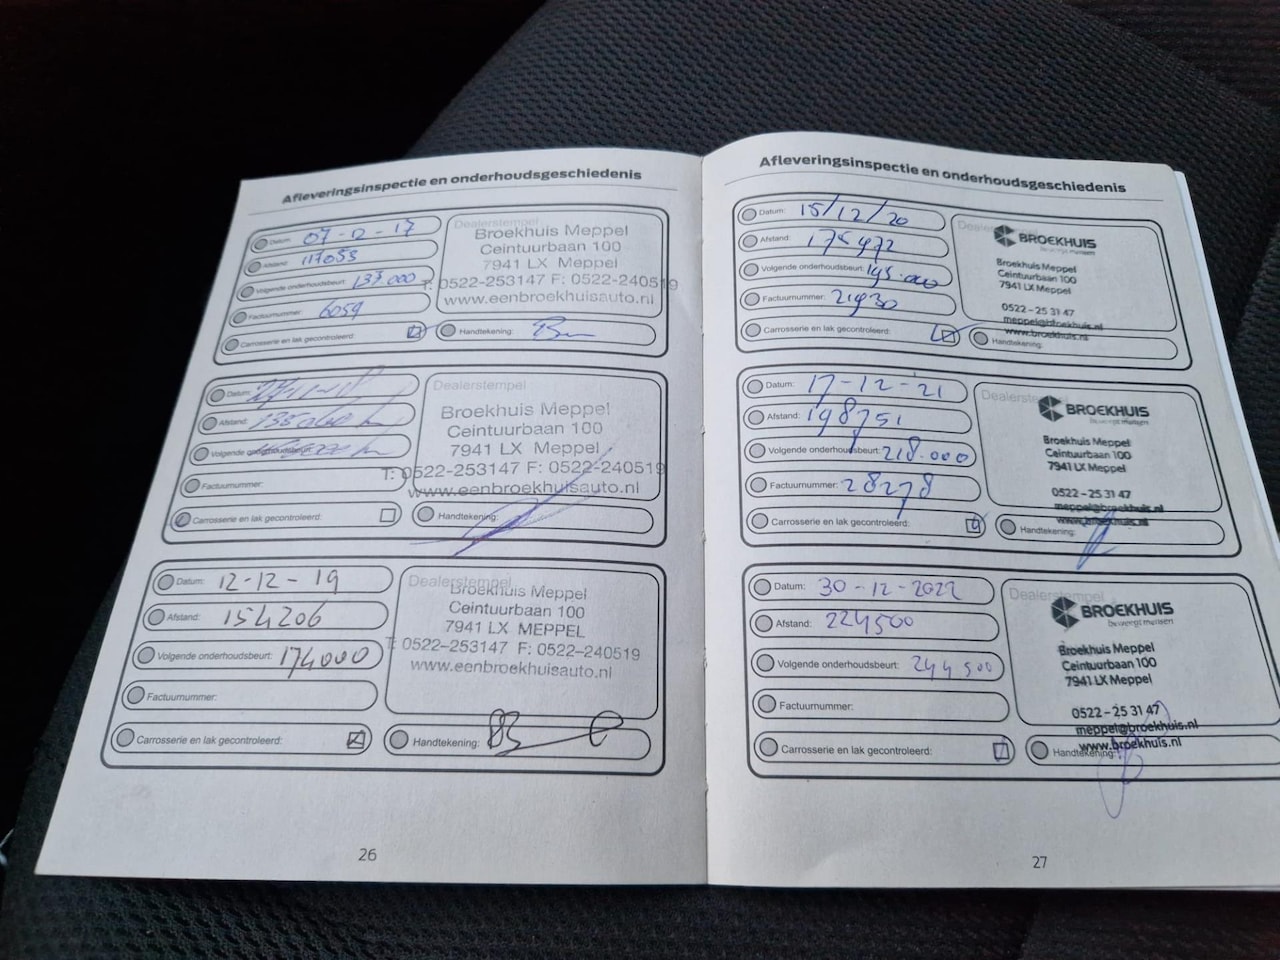 Afleveringsinspectie en onderhoudsgeschiedenis
Datum: 07-12-17
Afstand: 117053
Volgende onderhoudsbeurt: 137.000
Factuurnummer: 6059
Carrosserie en lak gecontroleerd:
Dealerstempel
Broekhuis Meppel
Ceintuurbaan 100
7941 LX Meppel
T: 0522-253147 F: 0522-240519
www.eenbroekhuisauto.nl
Handtekening:
Datum:
Afstand:
Volgende onderhoudsbeurt:
Factuurnummer:
Carrosserie en lak gecontroleerd:
Dealerstempel
Broekhuis Meppel
Ceintuurbaan 100
7941 LX Meppel
T: 0522-253147 F: 0522-240519
www.eenbroekhuisauto.nl
Handtekening:
Datum: 12-12-19
Afstand: 154206
Volgende onderhoudsbeurt: 174000
Factuurnummer:
Carrosserie en lak gecontroleerd:
Dealerstempel
Broekhuis Meppel
Ceintuurbaan 100
7941 LX MEPPEL
T: 0522-253147 F: 0522-240519
www.eenbroekhuisauto.nl
Handtekening:
26
Afleveringsinspectie en onderhoudsgeschiedenis
Datum: 15/12/20
Afstand: 175972
Volgende onderhoudsbeurt: 195.000
Factuurnummer: 21930
Carrosserie en lak gecontroleerd:
Dealerstempel
BROEKHUIS
beweegt mensen
Broekhuis Meppel
Ceintuurbaan 100
7941 LX Meppel
0522-25 31 47
meppel@broekhuis.nl
www.broekhuis.nl
Handtekening:
Datum: 17-12-21
Afstand: 198751
Volgende onderhoudsbeurt: 218.000
Factuurnummer: 28278
Carrosserie en lak gecontroleerd:
Dealerstempel
BROEKHUIS
beweegt mensen
Broekhuis Meppel
Ceintuurbaan 100
7941 LX Meppel
0522-25 31 47
meppel@broekhuis.nl
www.broekhuis.nl
Handtekening:
Datum: 30-12-2022
Afstand: 224500
Volgende onderhoudsbeurt: 244500
Factuurnummer:
Carrosserie en lak gecontroleerd:
Dealerstempel
BROEKHUIS
beweegt mensen
Broekhuis Meppel
Ceintuurbaan 100
7941 LX Meppel
0522-25 31 47
meppel@broekhuis.nl
www.broekhuis.nl
Handtekening:
27